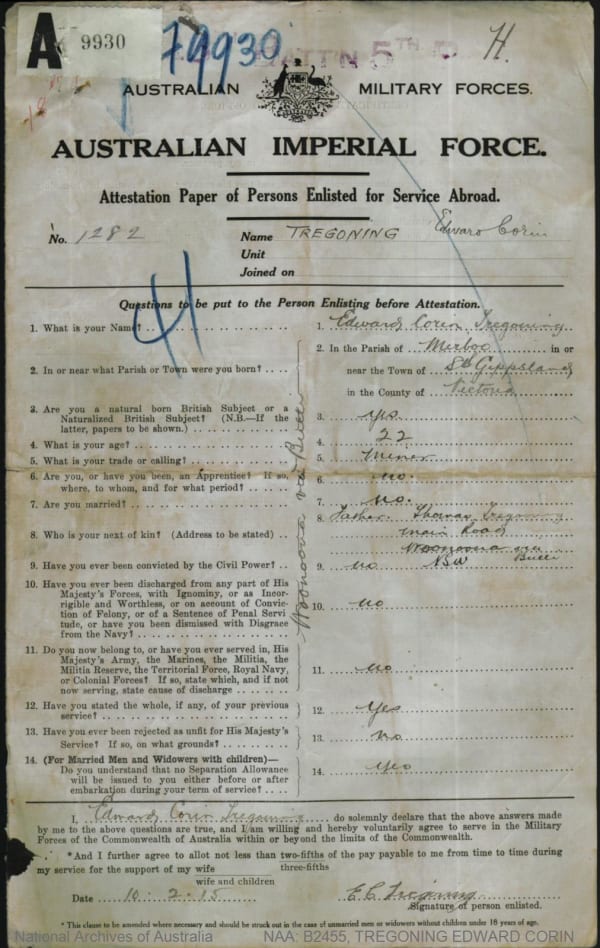 A 9930
79930 BATT'N 5TH H.
AUSTRALIAN MILITARY FORCES.
AUSTRALIAN IMPERIAL FORCE.
Attestation Paper of Persons Enlisted for Service Abroad.
No. 1282 Name TREGONING Edward Corin
Unit
Joined on
Questions to be put to the Person Enlisting before Attestation.
1. What is your Name? 1. Edward Corin Tregoning
2. In or near what Parish or Town were you born? 2. In the Parish of Mirboo in or
near the Town of Sth Gippsland
in the County of Victoria
3. Are you a natural born British Subject or a
Naturalized British Subject? (N.B.—If the
latter, papers to be shown.) 3. yes
4. What is your age? 4. 22
5. What is your trade or calling? 5. Miner
6. Are you, or have you been, an Apprentice? If so,
where, to whom, and for what period? 6. no.
7. Are you married? 7. no.
8. Who is your next of kin? (Address to be stated) 8. Father Thomas Tregoning
Main Road
Woonoona via
NSW Bulli
Woonoona via Bulli
9. Have you ever been convicted by the Civil Power? 9. no
10. Have you ever been discharged from any part of His
Majesty's Forces, with Ignominy, or as Incor-
rigible and Worthless, or on account of Convic-
tion of Felony, or of a Sentence of Penal Servi
tude, or have you been dismissed with Disgrace
from the Navy? 10. no
11. Do you now belong to, or have you ever served in, His
Majesty's Army, the Marines, the Militia, the
Militia Reserve, the Territorial Force, Royal Navy,
or Colonial Forces? If so, state which, and if not
now serving, state cause of discharge 11. no
12. Have you stated the whole, if any, of your previous
service? 12. Yes
13. Have you ever been rejected as unfit for His Majesty's
Service? If so, on what grounds? 13. no
14. (For Married Men and Widowers with children)—
Do you understand that no Separation Allowance
will be issued to you either before or after
embarkation during your term of service? 14. yes
I, Edward Corin Tregoning do solemnly declare that the above answers made
by me to the above questions are true, and I am willing and hereby voluntarily agree to serve in the Military
Forces of the Commonwealth of Australia within or beyond the limits of the Commonwealth.
*And I further agree to allot not less than two-fifths of the pay payable to me from time to time during
three-fifths
my service for the support of my wife
wife and children
Date 10.2.15 E.C. Tregoning
Signature of person enlisted.
* This clause to be amended where necessary and should be struck out in the case of unmarried men or widowers without children under 18 years of age.
National Archives of Australia NAA: B2455, TREGONING EDWARD CORIN